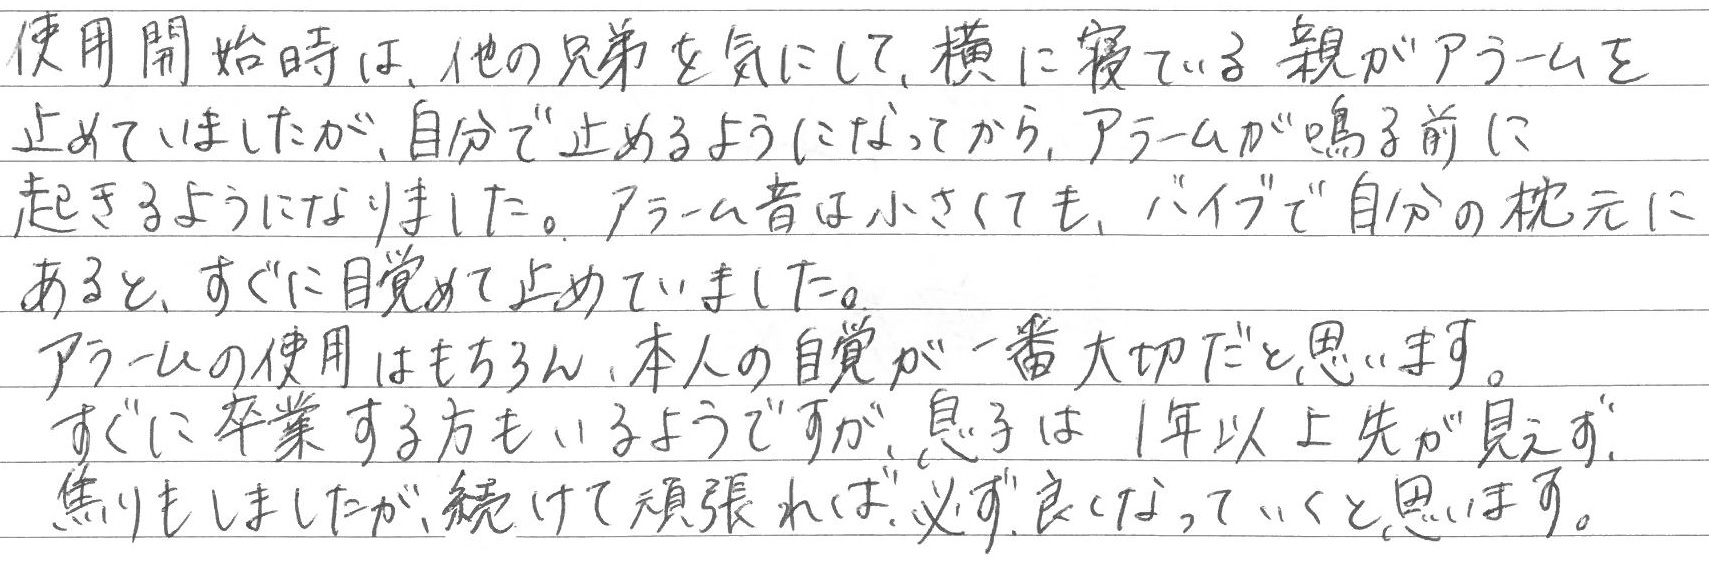 使用開始時は、他の兄弟を気にして、横に寝ている親がアラームを
止めていましたが、自分で止めるようになってから、アラームが鳴る前に
起きるようになりました。アラーム音は小さくても、バイブで自分の枕元に
あると、すぐに目覚めて止めていました。
アラームの使用はもちろん、本人の自覚が一番大切だと思います。
すぐに卒業する方もいるようですが、息子は1年以上先が見えず、
焦りもしましたが、続けて頑張れば、必ず良くなっていくと思います。